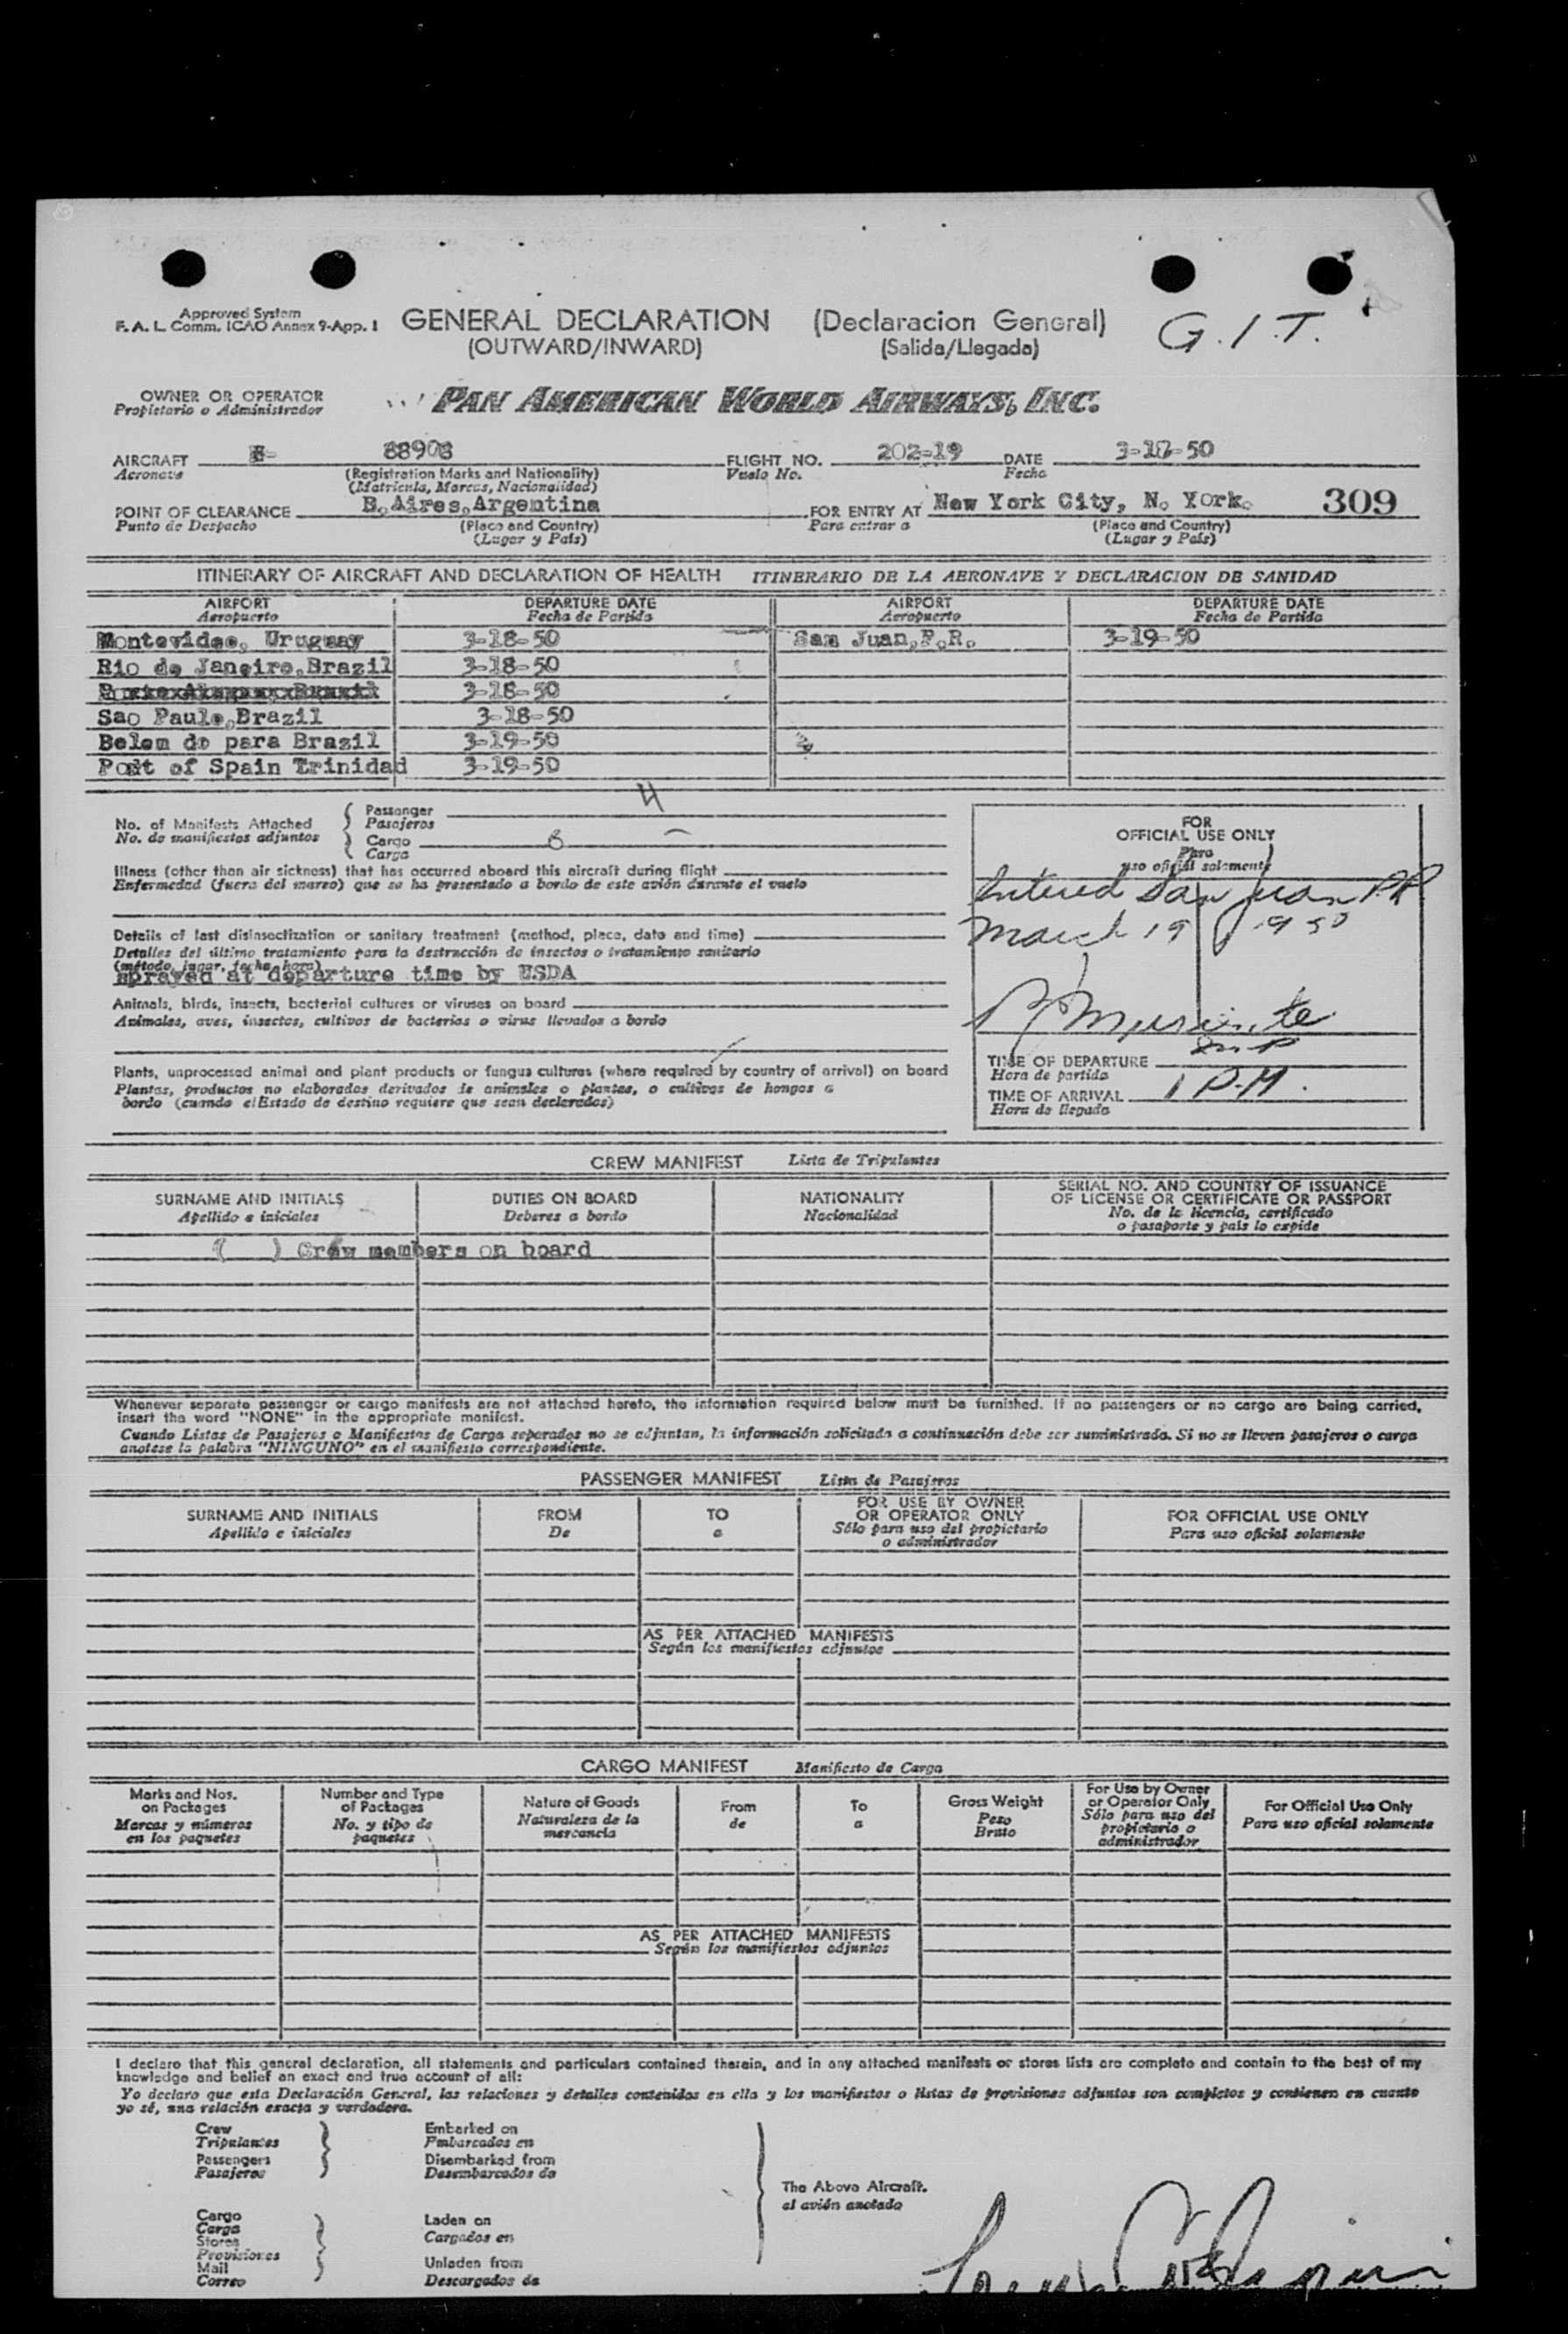 Approved System
F. A. L. Comm. ICAO Annex 9-App. 1
GENERAL DECLARATION (Declaracion General)
(OUTWARD/INWARD) (Salida/Llegada)
G.I.T.
OWNER OR OPERATOR
Propietario o Administrador
PAN AMERICAN WORLD AIRWAYS, INC.
AIRCRAFT 88908 FLIGHT NO. 202-19 DATE 3-18-50
Aeronave (Registration Marks and Nationality) Vuelo No. Fecha
(Matricula, Marcas, Nacionalidad)
POINT OF CLEARANCE B.Aires,Argentina FOR ENTRY AT New York City, N. York. 309
Punto de Despacho (Place and Country) Para entrar a (Place and Country)
(Lugar y País) (Lugar y País)
ITINERARY OF AIRCRAFT AND DECLARATION OF HEALTH ITINERARIO DE LA AERONAVE Y DECLARACION DE SANIDAD
AIRPORT DEPARTURE DATE AIRPORT DEPARTURE DATE
Aeropuerto Fecha de Partida Aeropuerto Fecha de Partida
Montevideo, Uruguay 3-18-50 San Juan,P.R. 3-19-50
Rio de Janeiro,Brazil 3-18-50
3-18-50
Sao Paulo,Brazil 3-18-50
Belem do para Brazil 3-19-50
Port of Spain Trinidad 3-19-50
No. of Manifests Attached
No. de manifiestos adjuntos
Passenger 4
Pasajeros
Cargo
Carga
Illness (other than air sickness) that has occurred aboard this aircraft during flight
Enfermedad (fuera del mareo) que se ha presentado a bordo de este avión durante el vuelo
Details of last disinsectization or sanitary treatment (method, place, date and time)
Detalles del último tratamiento para la destrucción de insectos o tratamiento sanitario
(método, lugar, fecha, hora)
sprayed at departure time by USDA
Animals, birds, insects, bacterial cultures or viruses on board
Animales, aves, insectos, cultivos de bacterias o virus llevados a bordo
Plants, unprocessed animal and plant products or fungus cultures (where required by country of arrival) on board
Plantas, productos no elaborados derivados de animales o plantas, o cultivos de hongos a
bordo (cuando el Estado de destino requiere que sean declarados)
FOR
OFFICIAL USE ONLY
Para
uso oficial solamente
Entered San Juan PR
March 19 1950
TIME OF DEPARTURE
Hora de partida
TIME OF ARRIVAL 1 P.M.
Hora de llegada
CREW MANIFEST Lista de Tripulantes
SURNAME AND INITIALS DUTIES ON BOARD NATIONALITY SERIAL NO. AND COUNTRY OF ISSUANCE
OF LICENSE OR CERTIFICATE OR PASSPORT
Apellido e iniciales Deberes a bordo Nacionalidad No. de la licencia, certificado
o pasaporte y país lo expide
( ) Crew members on board
Whenever separate passenger or cargo manifests are not attached hereto, the information required below must be furnished. If no passengers or no cargo are being carried,
insert the word "NONE" in the appropriate manifest.
Cuando Listas de Pasajeros o Manifiestos de Carga separados no se adjuntan, la información solicitada a continuación debe ser suministrada. Si no se lleven pasajeros o carga
anotese la palabra "NINGUNO" en el manifiesto correspondiente.
PASSENGER MANIFEST Lista de Pasajeros
SURNAME AND INITIALS FROM TO FOR USE BY OWNER
OR OPERATOR ONLY FOR OFFICIAL USE ONLY
Apellido e iniciales De a Sólo para uso del propietario
o administrador Para uso oficial solamente
AS PER ATTACHED MANIFESTS
Según los manifiestos adjuntos
CARGO MANIFEST Manifiesto de Carga
Marks and Nos.
on Packages
Marcas y números
en los paquetes
Number and Type
of Packages
No. y tipo de
paquetes
Nature of Goods
Naturaleza de la
mercancía
From
de
To
a
Gross Weight
Peso
Bruto
For Use by Owner
or Operator Only
Sólo para uso del
propietario o
administrador
For Official Use Only
Para uso oficial solamente
AS PER ATTACHED MANIFESTS
Según los manifiestos adjuntos
I declare that this general declaration, all statements and particulars contained therein, and in any attached manifests or stores lists are complete and contain to the best of my
knowledge and belief an exact and true account of all:
Yo declaro que esta Declaración General, las relaciones y detalles contenidos en ella y los manifiestos o listas de provisiones adjuntos son completos y contienen en cuanto
yo sé, una relación exacta y verdadera.
Crew
Tripulantes
Passengers
Pasajeros
Embarked on
Embarcados en
Disembarked from
Desembarcados de
The Above Aircraft.
al avión anotado
Cargo
Carga
Stores
Provisiones
Mail
Correo
Laden on
Cargados en
Unladen from
Descargados de